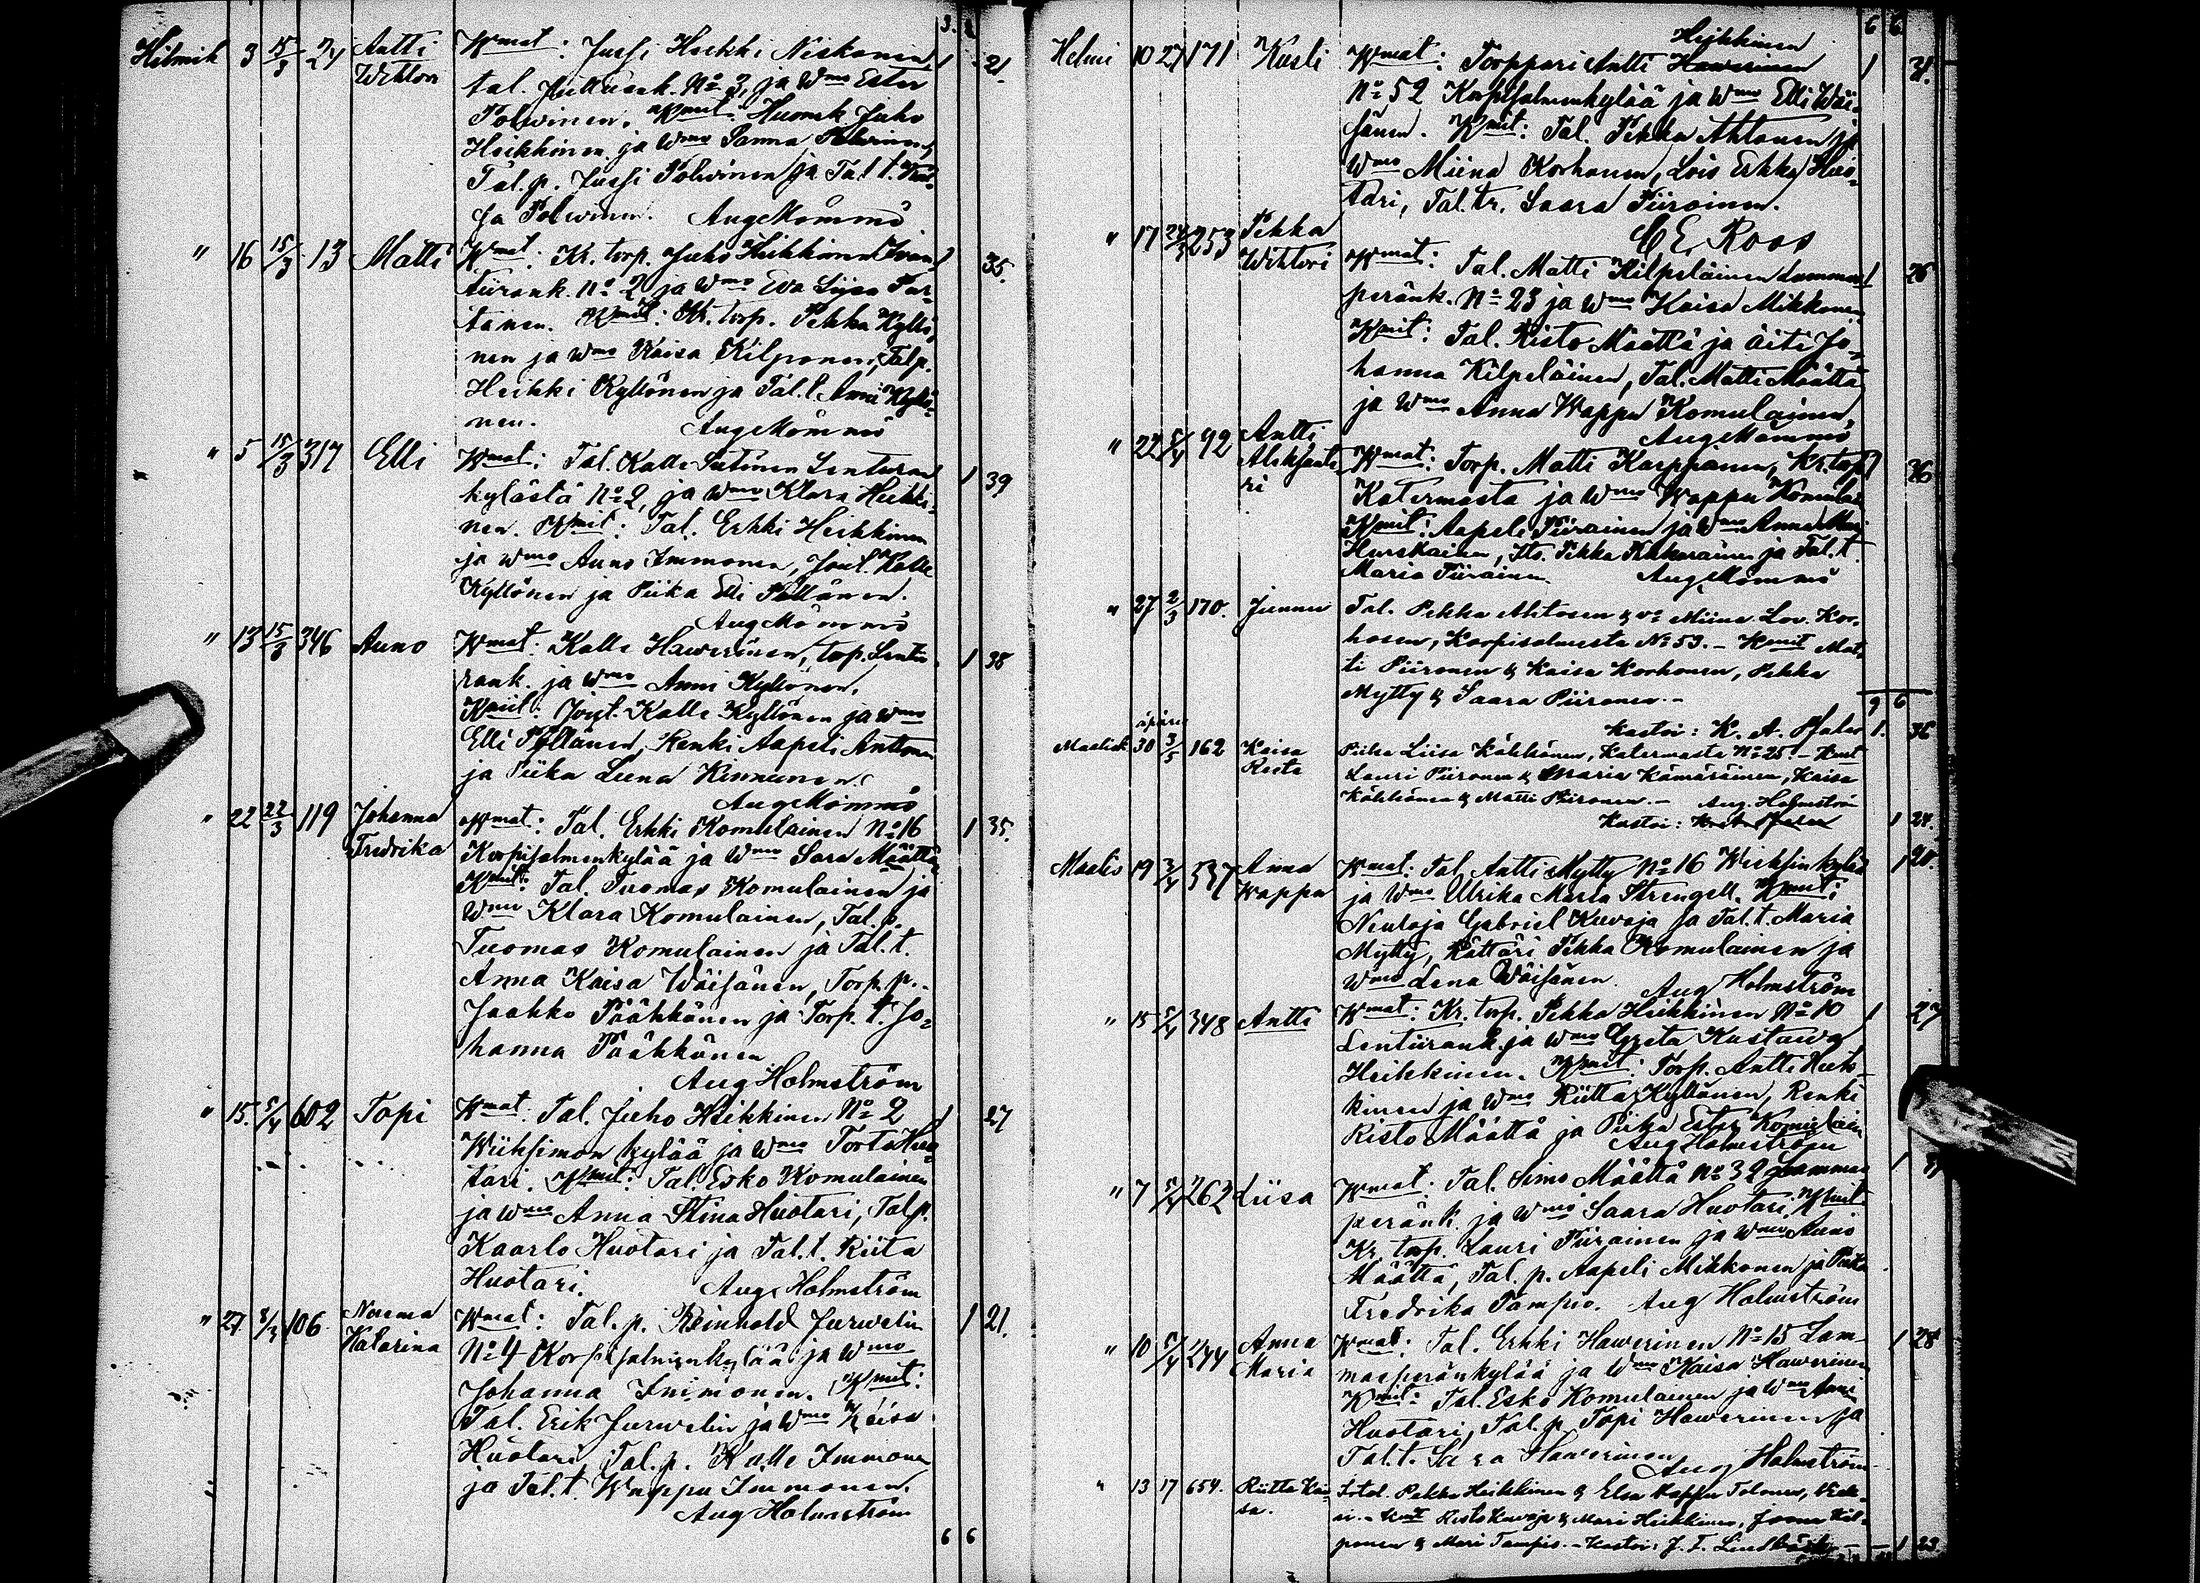 3.
Helmik 3 15/3 24 Antti Wmat: Jussi Heikki Niskanen 1 21.
Wihtori tal. No 3, ja Wmo Ester
Polwinen. Kmit: Huonek Juho
Heikkinen ja Wmo Sanna Polwinen,
Tal. p. Jussi Polwinen ja Tal. t.
ja Polwinen. Aug Mömmö
" 16 15/3 13 Matti Wmat: Kr. torp. Juho Heikkinen 35.
tiirank. No 2 ja Wmo Eva Liisa Tar-
tanen. Kmit: Kr. torp. Pekka Kyllö-
nen ja Wmo Kaisa Kilponen, Tal p.
Heikki Kyllönen ja Tal. t. Anni Kyllö-
nen. Aug Mömmö
" 5 15/3 317 Elli Wmat: Tal. Kalle Sutinen Lentiiran 1 39
kylästä No 2, ja Wmo Klara Heikki-
nen. Kmit: Tal. Erkki Heikkinen
ja Wmo Auno Immonen, Joul. Kalle
Kyllönen ja Piika Elli Pöllänen.
Aug Mömmö
" 13 15/3 346 Auno Wmat: Kalle Hawerinen, torp. Lentii- 1 38
rank. ja Wmo Anni Kyllönen.
Kmit: Kalle Kyllönen ja Wmo
Elli Pöllänen, Renki Aapeli Anttonen
ja Piika Leena Kinnunen.
Aug Mömmö
" 22 22/3 119 Johanna Wmat: Tal. Erkki Komulainen No 16 1 35.
Fredrika Korpisalmenkylää ja Wmo Sara Määttä
Kmit: Tal. Tuomas Komulainen ja
Wmo Klara Komulainen, Tal. p.
Tuomas Komulainen ja Tal. t.
Anna Kaisa Wäisänen, Torp. p.
Jaakko Pääkkönen ja Torp. t. Jo-
hanna Pääkkönen
Aug Holmström
" 15. 5/4 602 Topi Wmat: Tal. Juho Heikkinen No 2 1 27
Wiiksimon kylää ja Wmo Torta Huo-
tari. Kmit: Tal. Esko Komulainen
ja Wmo Anna Stina Huotari, Tal p.
Kaarlo Huotari ja Tal. t. Riita
Huotari. Aug Holmström
" 27 8/4 106 Katarina Wmat: Tal. p. Reinhold Jurwelin 1 21.
No 4 Korpisalmenkylää ja Wmo
Johanna Immonen. Kmit:
Tal. Erik Jurwelin ja Wmo Kaisa
Huotari, Tal. p. Kalle Immonen
ja Tal. t. Wappu Immonen.
Aug Holmström
6 6
6 6
Heikkinen
Helmi 10 27 171 Kusti Wmat: Torppari Antti Hawerinen 1 31.
No 52 Korpisalmenkylää ja Wmo Elli Wäi-
sänen. Kmit: Tal. Pekka Ahtonen ja
Wmo Miina Korhonen, Lois Erkki Huo-
tari, Tal. tr. Saara Piiroinen.
C E Roos
" 17 24/3 253 Pekka
Wihtori Wmat: Tal. Matti Kilpeläinen Lammas- 1 26
peränk. No 23 ja Wmo Kaisa Mikkonen
Kmit: Tal. Risto Määttä ja äiti Jo-
hanna Kilpeläinen, Tal. Matti Määttä
ja Wmo Anna Wappu Komulainen,
Aug Mömmö
" 22 5/4 92 Antti
Aleksante- Wmat: Torp. Matti Karppanen, Kr. torp 1 36
ri Katermasta ja Wmo Wappu Komulai
Kmit: Aapeli Piirainen ja Wmo Anna Mari
Hurskainen, Its. Pekka ja Tal. t.
Maria Piirainen. Aug Mömmö
" 27 2/3 170. Jummu Tal. Pekka Ahtosen & vo Miina Lov. Kor-
hosen, Korpisalmesta No 53. – Kmit Mat-
ti Piironen & Kaisa Korhonen, Pekka
Mytty & Saara Piironen. –
7 6
Kastoi: K. A. 1. 36
äpärä
Maalisk 30 3/5 162 Kaisa Piika Liisa Kähkönen, Katermasta No 25. – Kmit
Reeta Lauri Piironen & Maria Kämäräinen, Kaisa
Kähkönen & Matti Piironen. – Aug. Holmström
Kastoi: 1 24.
Maalis 19 3/4 537 Anna Wmat: Tal. Antti Mytty No 16 Wiiksin kylää 1 20.
Wappu ja Wmo Ulrika Maria Strengell. Kmit:
Neuloja Gabriel Kuwaja ja Tal. t. Maria
Mytty, Kättäri Pekka Komulainen ja
Wmo Lena Wäisänen. Aug Holmström
" 15 5/4 348 Antti Wmat: Kr. torp. Pekka Heikkinen No 10 1 27
Lentiirank. ja Wmo Greta Kustawa
Heikkinen. Kmit: Torp. Antti Heik-
kinen ja Wmo Riitta Kyllönen, Renki
Risto Määttä ja Piika Ester Komulain
Aug Holmström
" 7 5/4 262 Liisa Wmat: Tal. Simo Määttä No 32 Lammas 1
peränk. ja Wmo Saara Huotari. Kmit
Kr. torp. Lauri Piirainen ja Wmo Auno
Määttä, Tal. p. Aapeli Mikkonen ja Piika
Fredrika Tampio. Aug Holmström
" 10 5/4 244 Anna Wmat: Tal. Erkki Hawerinen No 15 Lam- 1 28
Maria masperänkylää ja Wmo Kaisa Hawerinen
Kmit: Tal. Esko Komulainen ja Wmo Anni
Huotari, Tal. p. Topi Hawerinen ja
Tal. t. Sara Hawerinen
Aug Holmström
" 13 17 654. Riitta Kai- Pekka Heikkinen & Elsa Kaisa Tolonen,
sa. – Kmit Risto Kuvaja & Mari Heikkinen, Joone Kil-
ponen & Mari Tampio. – Kastoi: J. F. Lindbäck – 1 23